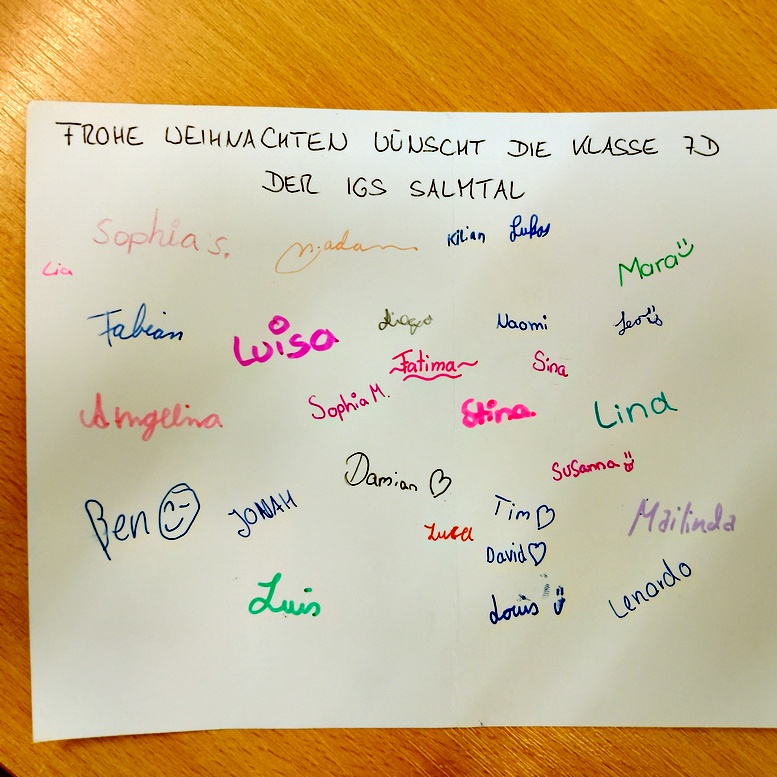 FROHE WEIHNACHTEN WÜNSCHT DIE KLASSE 7D
DER IGS SALMTAL
Sophia S.
Kilian Lukas
Lia
Mara
Fabian Luisa Naomi
Fatima Sina
Angelina Sophia M. Stina Lina
Damian Susanna
Ben JONAH Tim Mailinda
Luca
David
Luis Louis Lenardo